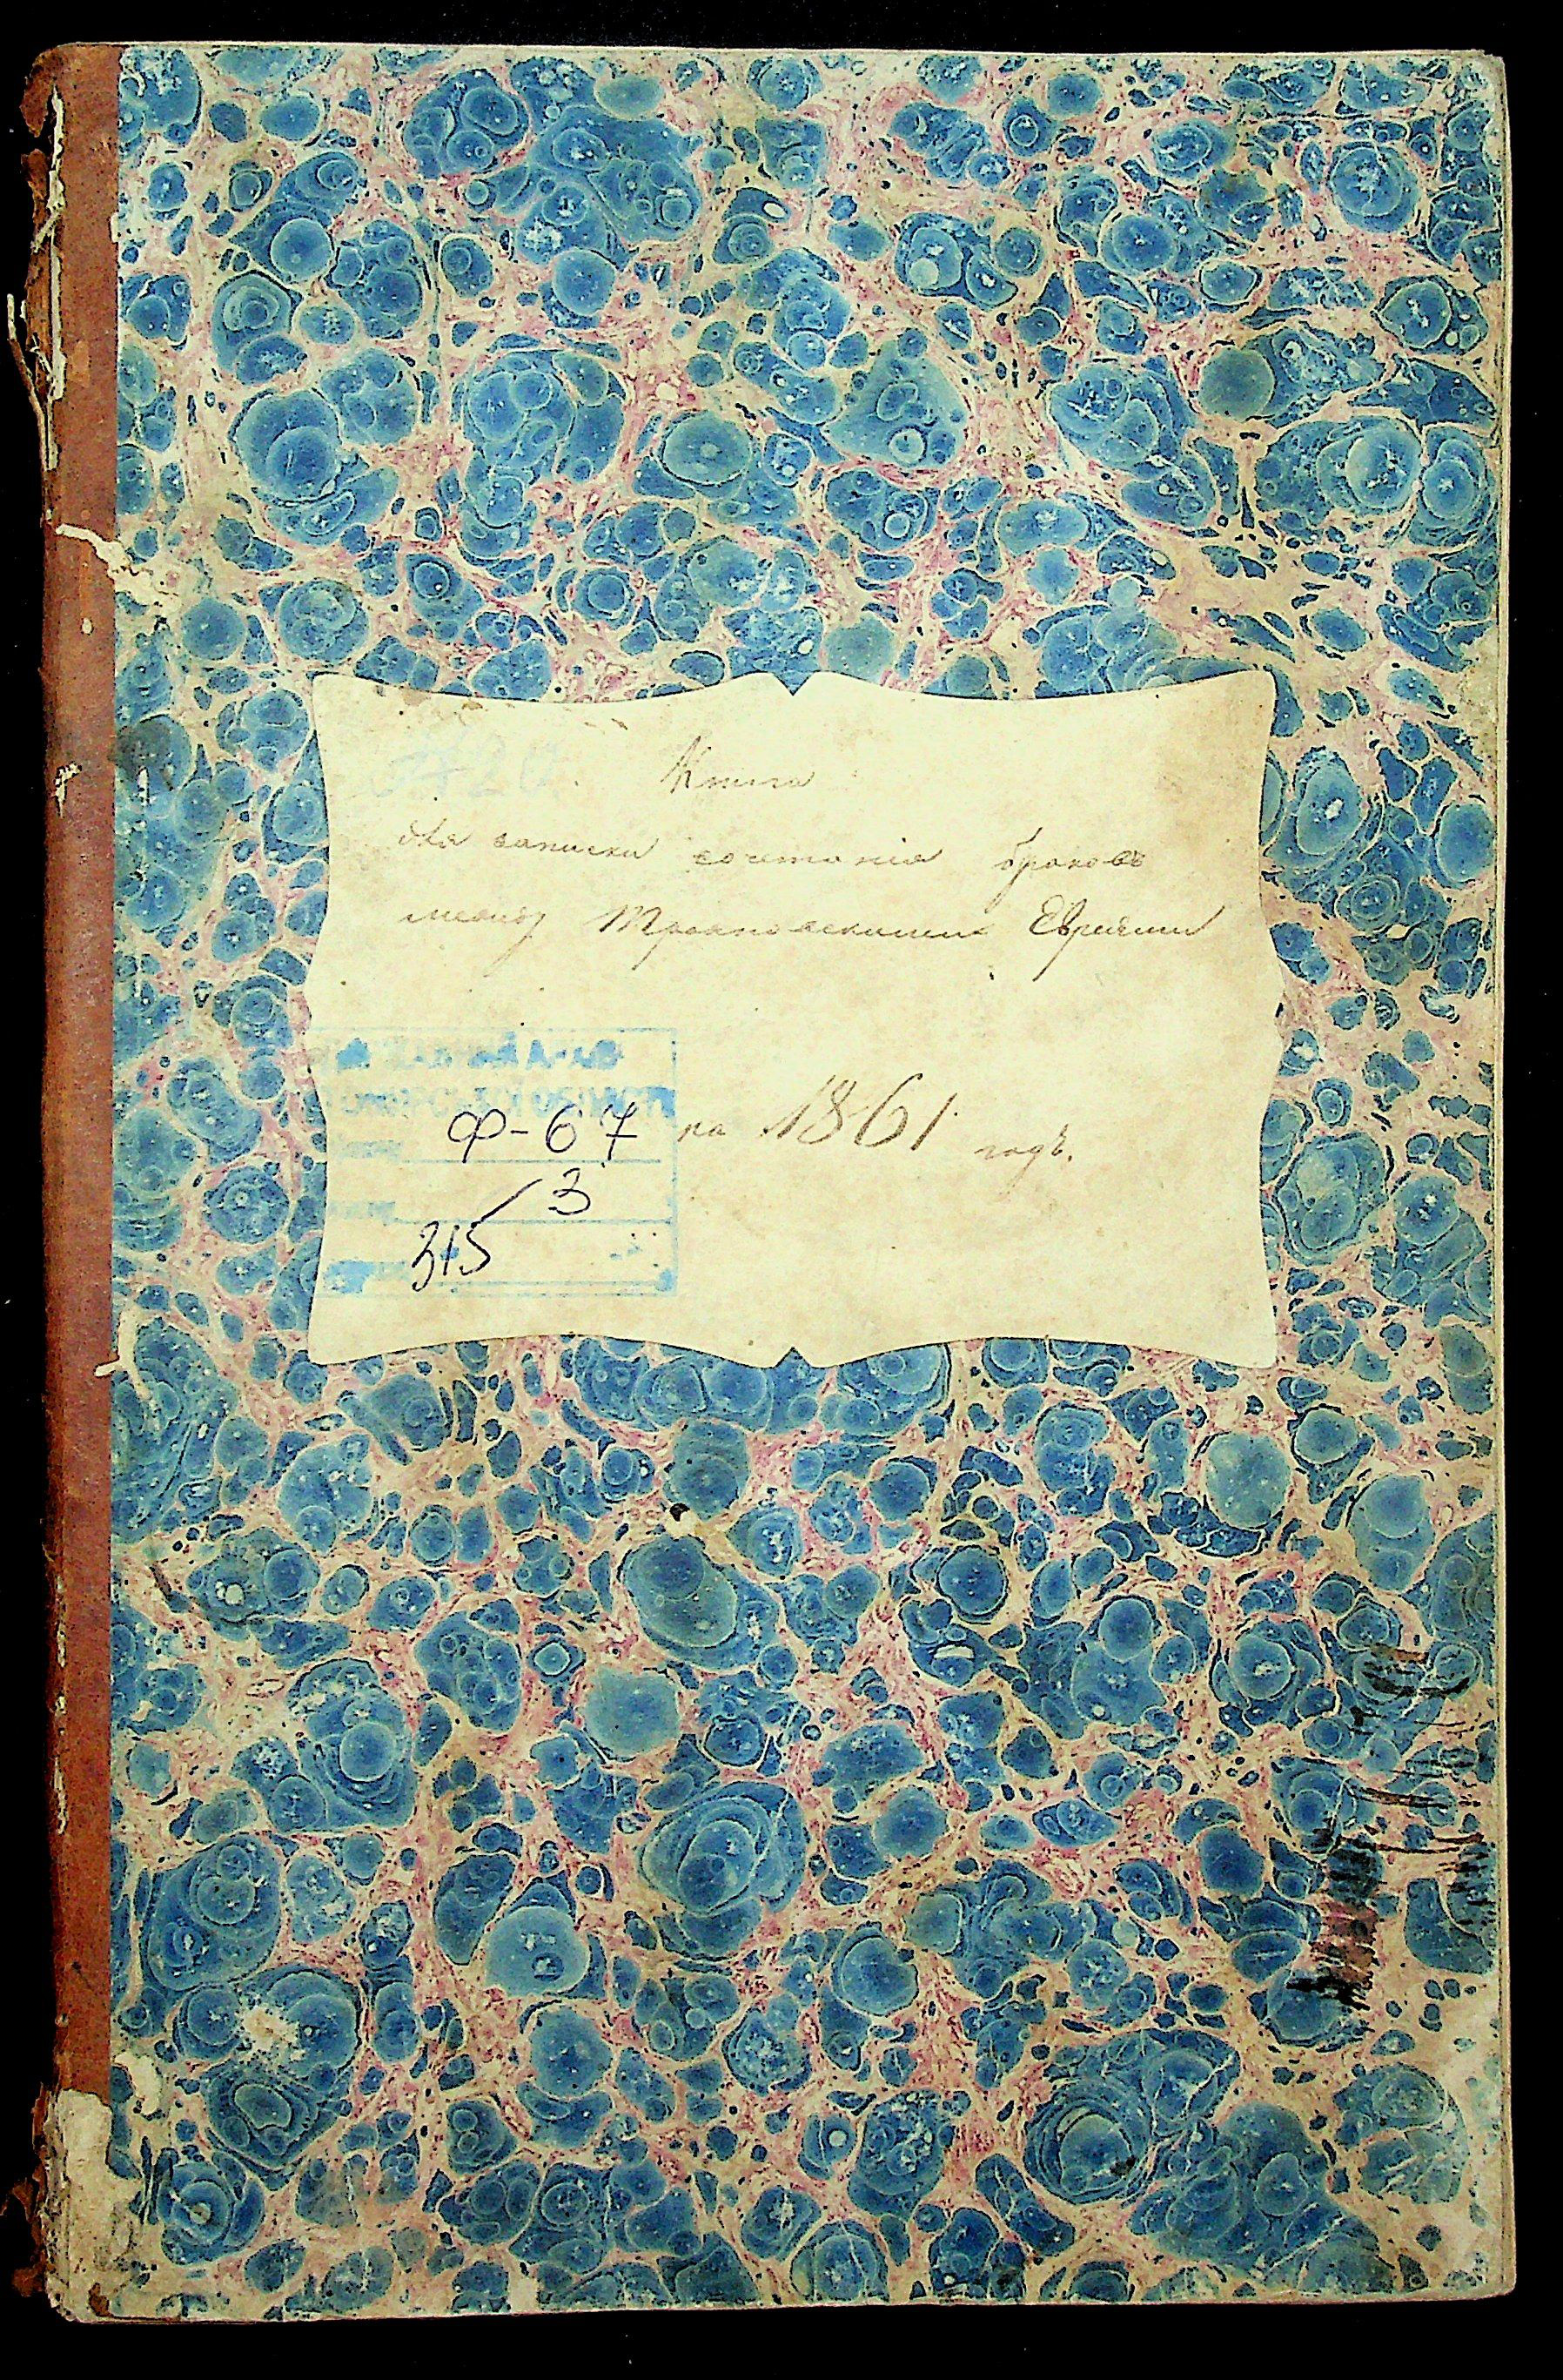 Книга
для записки сочетанія браковъ
между Трояновскими Евреями
на 1861 годъ.
Ф-67
3
315